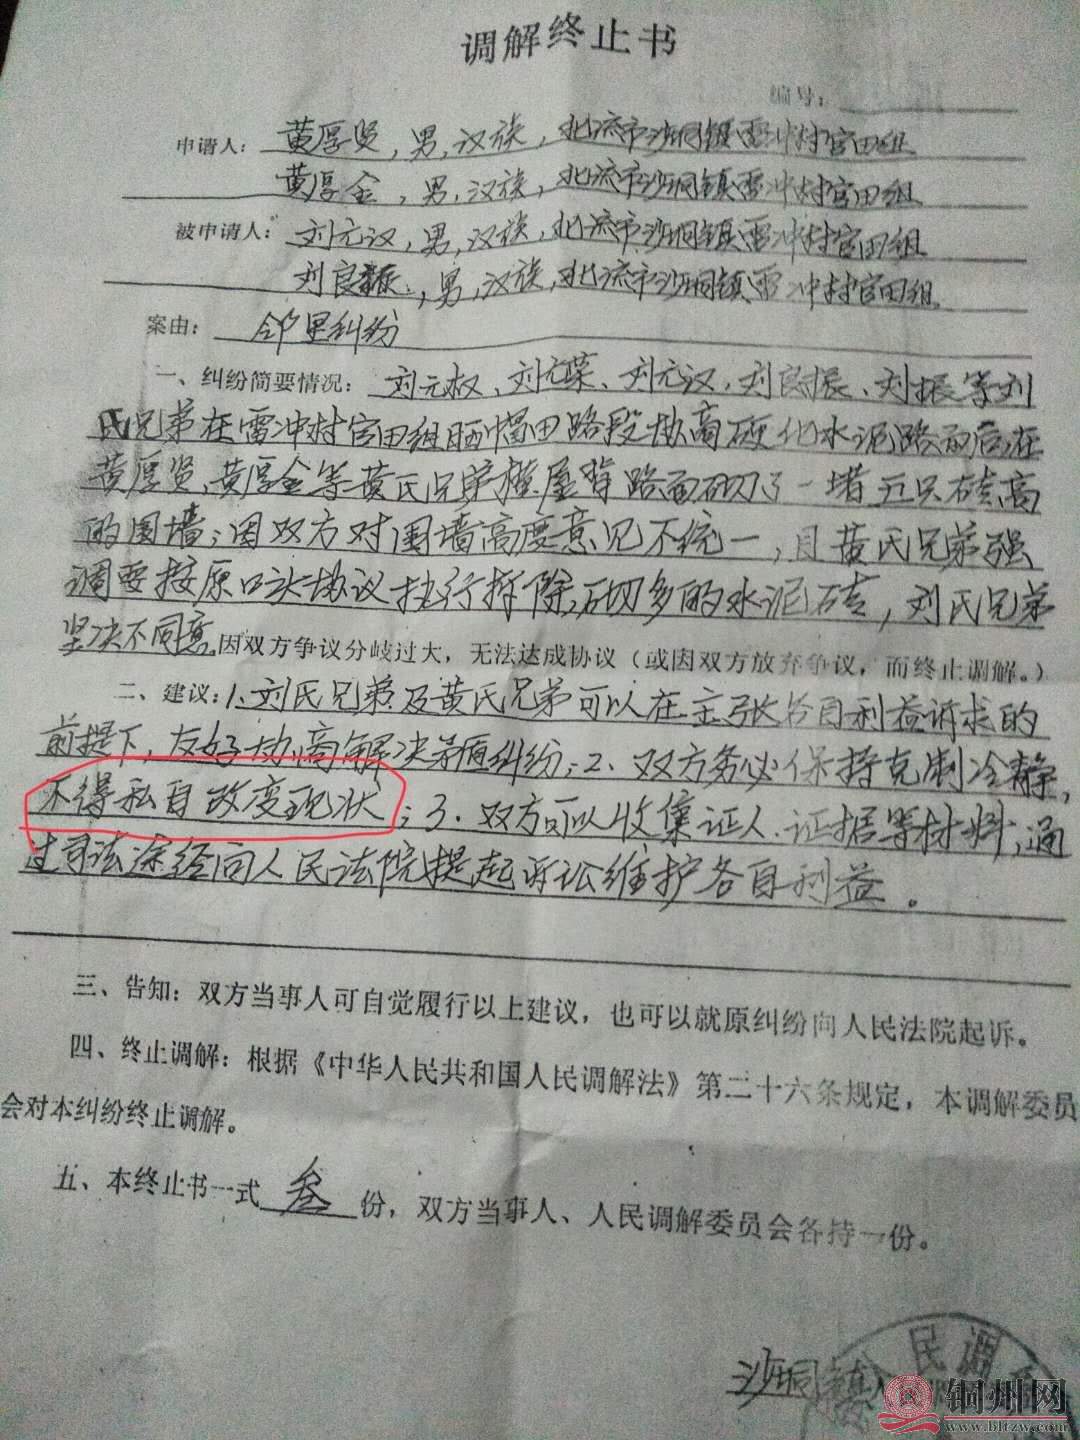 调解终止书
编号：
申请人：黄厚贤，男，汉族，北流市沙垌镇雷冲村官田组
黄厚金，男，汉族，北流市沙垌镇雷冲村官田组
被申请人：刘元汉，男，汉族，北流市沙垌镇雷冲村官田组
刘良振，男，汉族，北流市沙垌镇雷冲村官田组
案由：邻里纠纷
一、纠纷简要情况：刘元权、刘元荣、刘元汉，刘良振、刘振等刘
氏兄弟在雷冲村官田组晒煤田路段协商硬化水泥路面后在
黄厚贤，黄厚金等黄氏兄弟楼屋背路面砌了一堵五只砖高
的围墙；因双方对围墙高度意见不统一，且黄氏兄弟强
调要按原口头协议执行拆除砌多的水泥砖，刘氏兄弟
坚决不同意。因双方争议分歧过大，无法达成协议（或因双方放弃争议，而终止调解。）
二、建议：1、刘氏兄弟及黄氏兄弟可以在主张各自利益诉求的
前提下，友好协商解决矛盾纠纷；2、双方务必保持克制冷静，
不得私自改变现状；3、双方可以收集证人、证据等材料，通
过司法途径向人民法院提起诉讼维护各自利益。
三、告知：双方当事人可自觉履行以上建议，也可以就原纠纷向人民法院起诉。
四、终止调解：根据《中华人民共和国人民调解法》第二十六条规定，本调解委员
会对本纠纷终止调解。
五、本终止书一式叁份，双方当事人、人民调解委员会各持一份。
沙垌镇人
民调
铜州网
www.bltzw.com